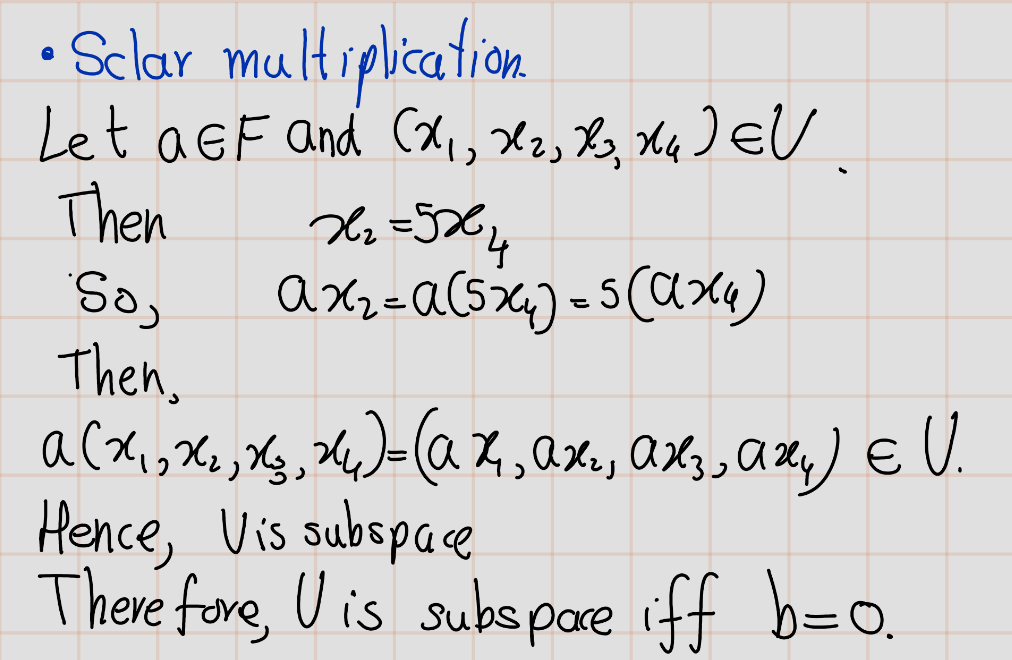 • Sclar multiplication.
Let a∈F and (x₁, x₂, x₃, x₄) ∈ U.
Then x₂ = 5x₄
So, ax₂ = a(5x₄) = 5(ax₄)
Then,
a(x₁, x₂, x₃, x₄) = (ax₁, ax₂, ax₃, ax₄) ∈ U.
Hence, U is subspace
Therefore, U is subspace iff b=0.